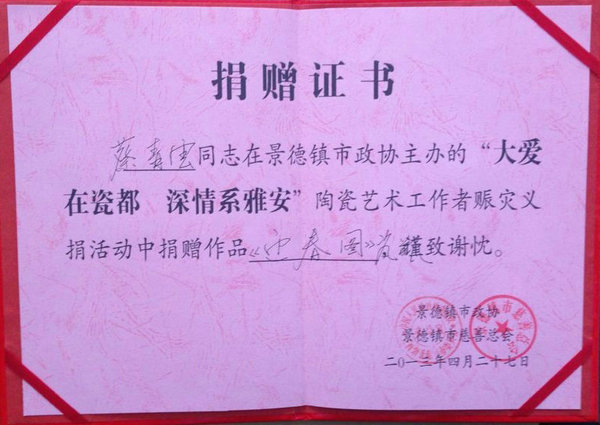 捐赠证书
蔡 同志在景德镇市政协主办的“大爱
在瓷都 深情系雅安”陶瓷艺术工作者赈灾义
捐活动中捐赠作品《迎春图》 谨致谢忱。
景德镇市政协
景德镇市慈善总会
二0一三年四月二十七日